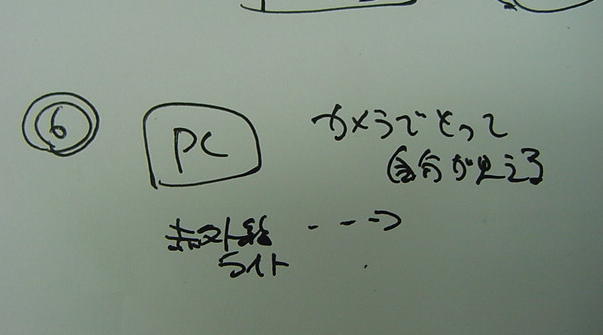 ⑥
PC
カメラでとって
自分が見える
赤外線
ライト